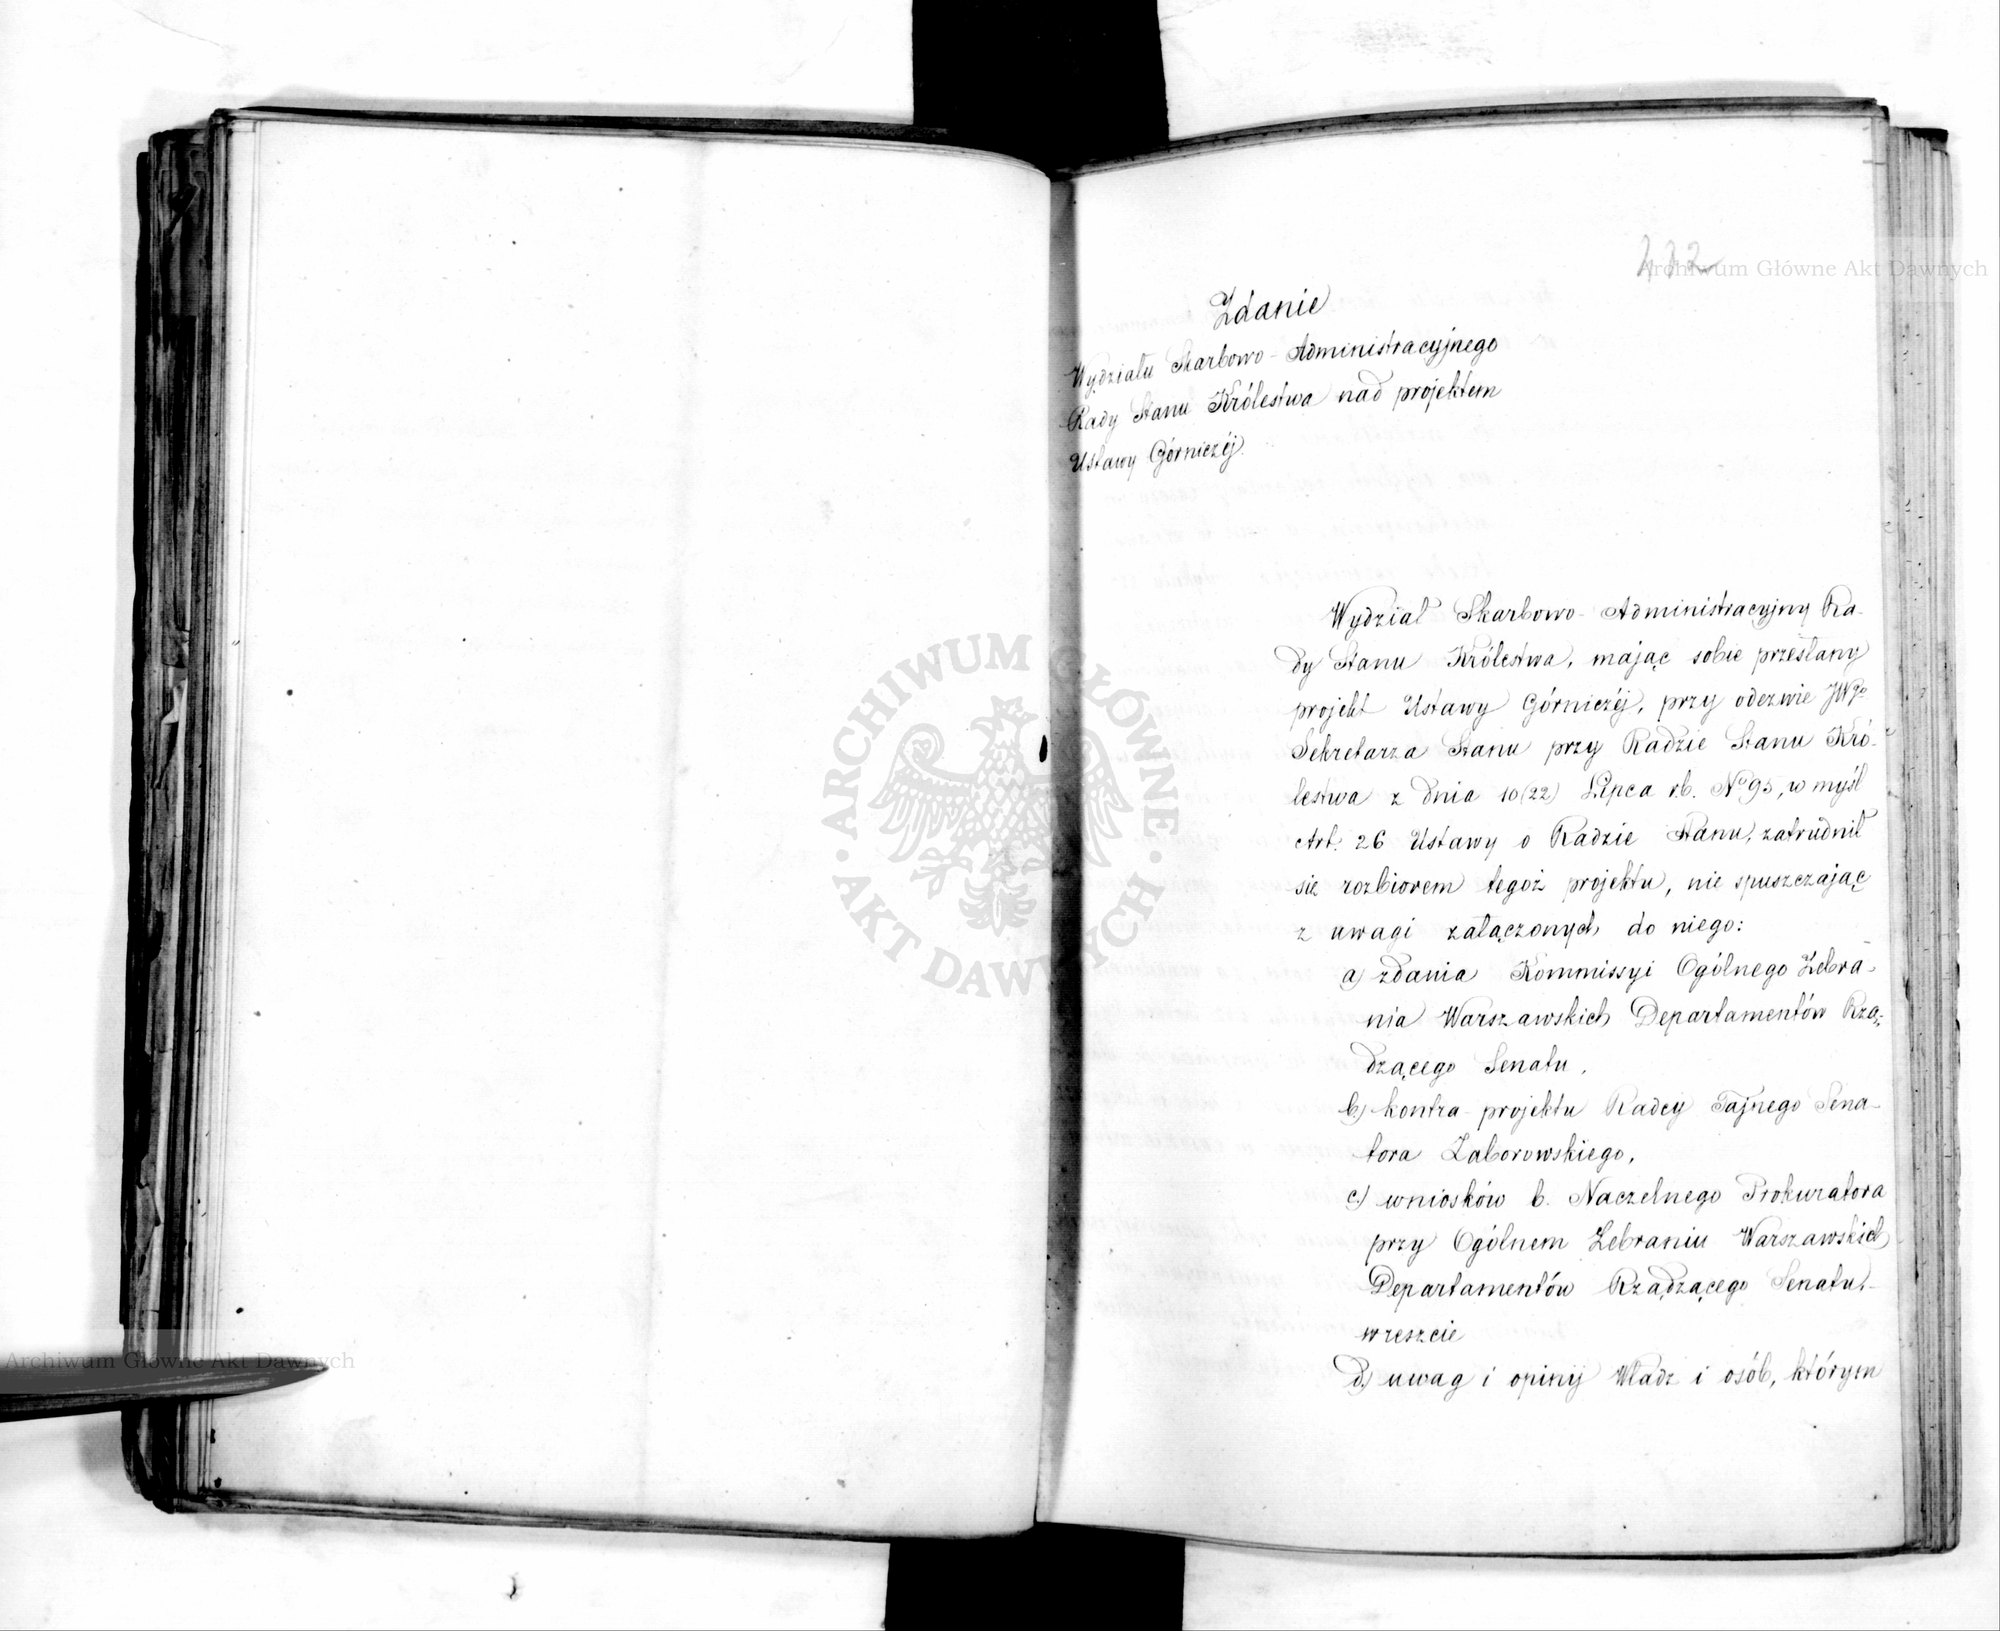 Archiwum Główne Akt Dawnych
Zdanie
Wydziału Skarbowo-Administracyjnego
Rady Stanu Królestwa nad projektem
Ustawy Górniczéj.
Wydział Skarbowo-Administracyjny Ra-
dy Stanu Królestwa, mając sobie przesłany
projekt Ustawy Górniczéj, przy odezwie JWgo
Sekretarza Stanu przy Radzie Stanu Kró-
lestwa z dnia 10(22) Lipca r.b. No 95, w myśl
Art. 26 Ustawy o Radzie Stanu, zatrudnił
się rozbiorem tegoż projektu, nie spuszczając
z uwagi załączonych do niego:
a) zdania Kommissyi Ogólnego Zebra-
nia Warszawskich Departamentów Rzą-
dzącego Senatu,
b) kontra-projektu Radcy Tajnego Sena-
tora Zaborowskiego,
c) wniosków b. Naczelnego Prokuratora
przy Ogólnem Zebraniu Warszawskich
Departamentów Rządzącego Senatu,-
wreszcie
d) uwag i opinij Władz i osób, którym
ARCHIWUM GŁÓWNE
AKT DAWNYCH
Archiwum Główne Akt Dawnych